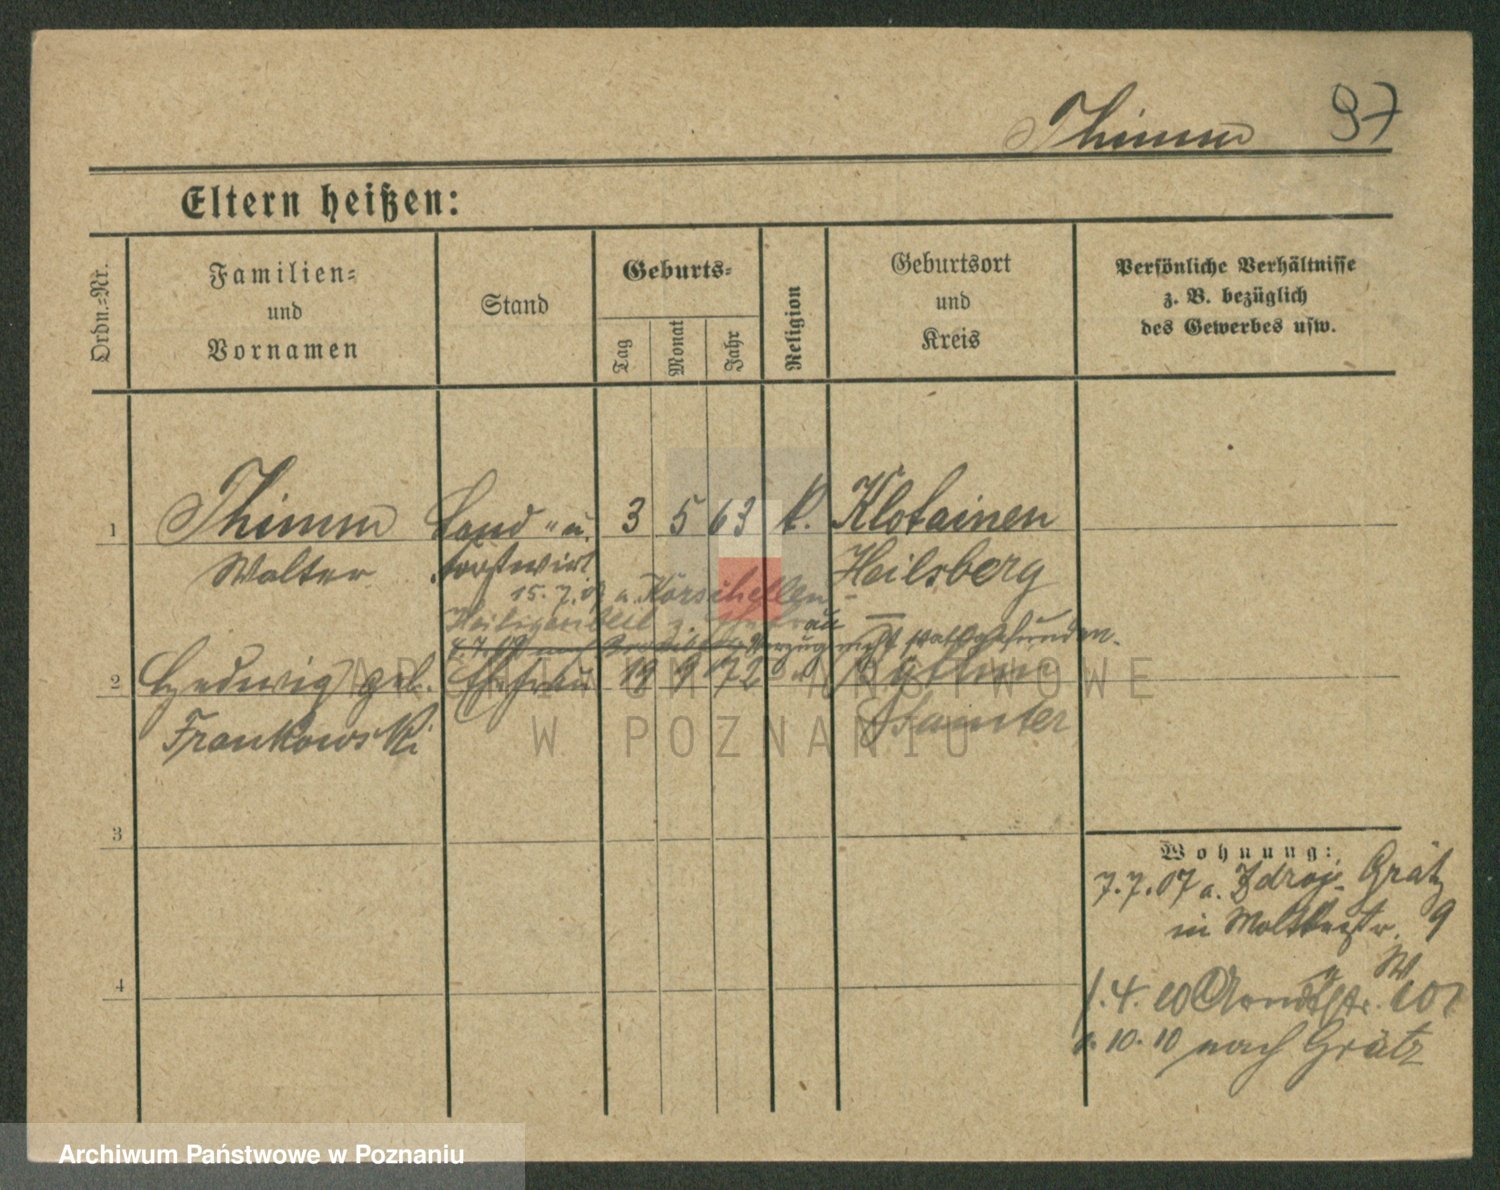 Thimm 97
Eltern heißen:
Ordn.-Nr.
Familien-
und
Vornamen
Stand
Geburts-
Tag
Monat
Jahr
Religion
Geburtsort
und
Kreis
Persönliche Verhältnisse
z. B. bezüglich
des Gewerbes usw.
1 Thimm Land- u. 3 5 63 k. Klotainen
Walter Forstwirt Heilsberg
15. 7. a. Korschellen
Heiligenbeil
Verzug nicht stattgefunden.
2 Hedwig geb. Ehefrau 19 9 72
Frankowski Samter
3
4
Wohnung:
7.7.07 a. Zdroj- Grätz
in Moltkestr. 9
1.4.10 Arndtstr.
10.10 nach Grätz
ARCHIWUM PAŃSTWOWE
W POZNANIU
Archiwum Państwowe w Poznaniu